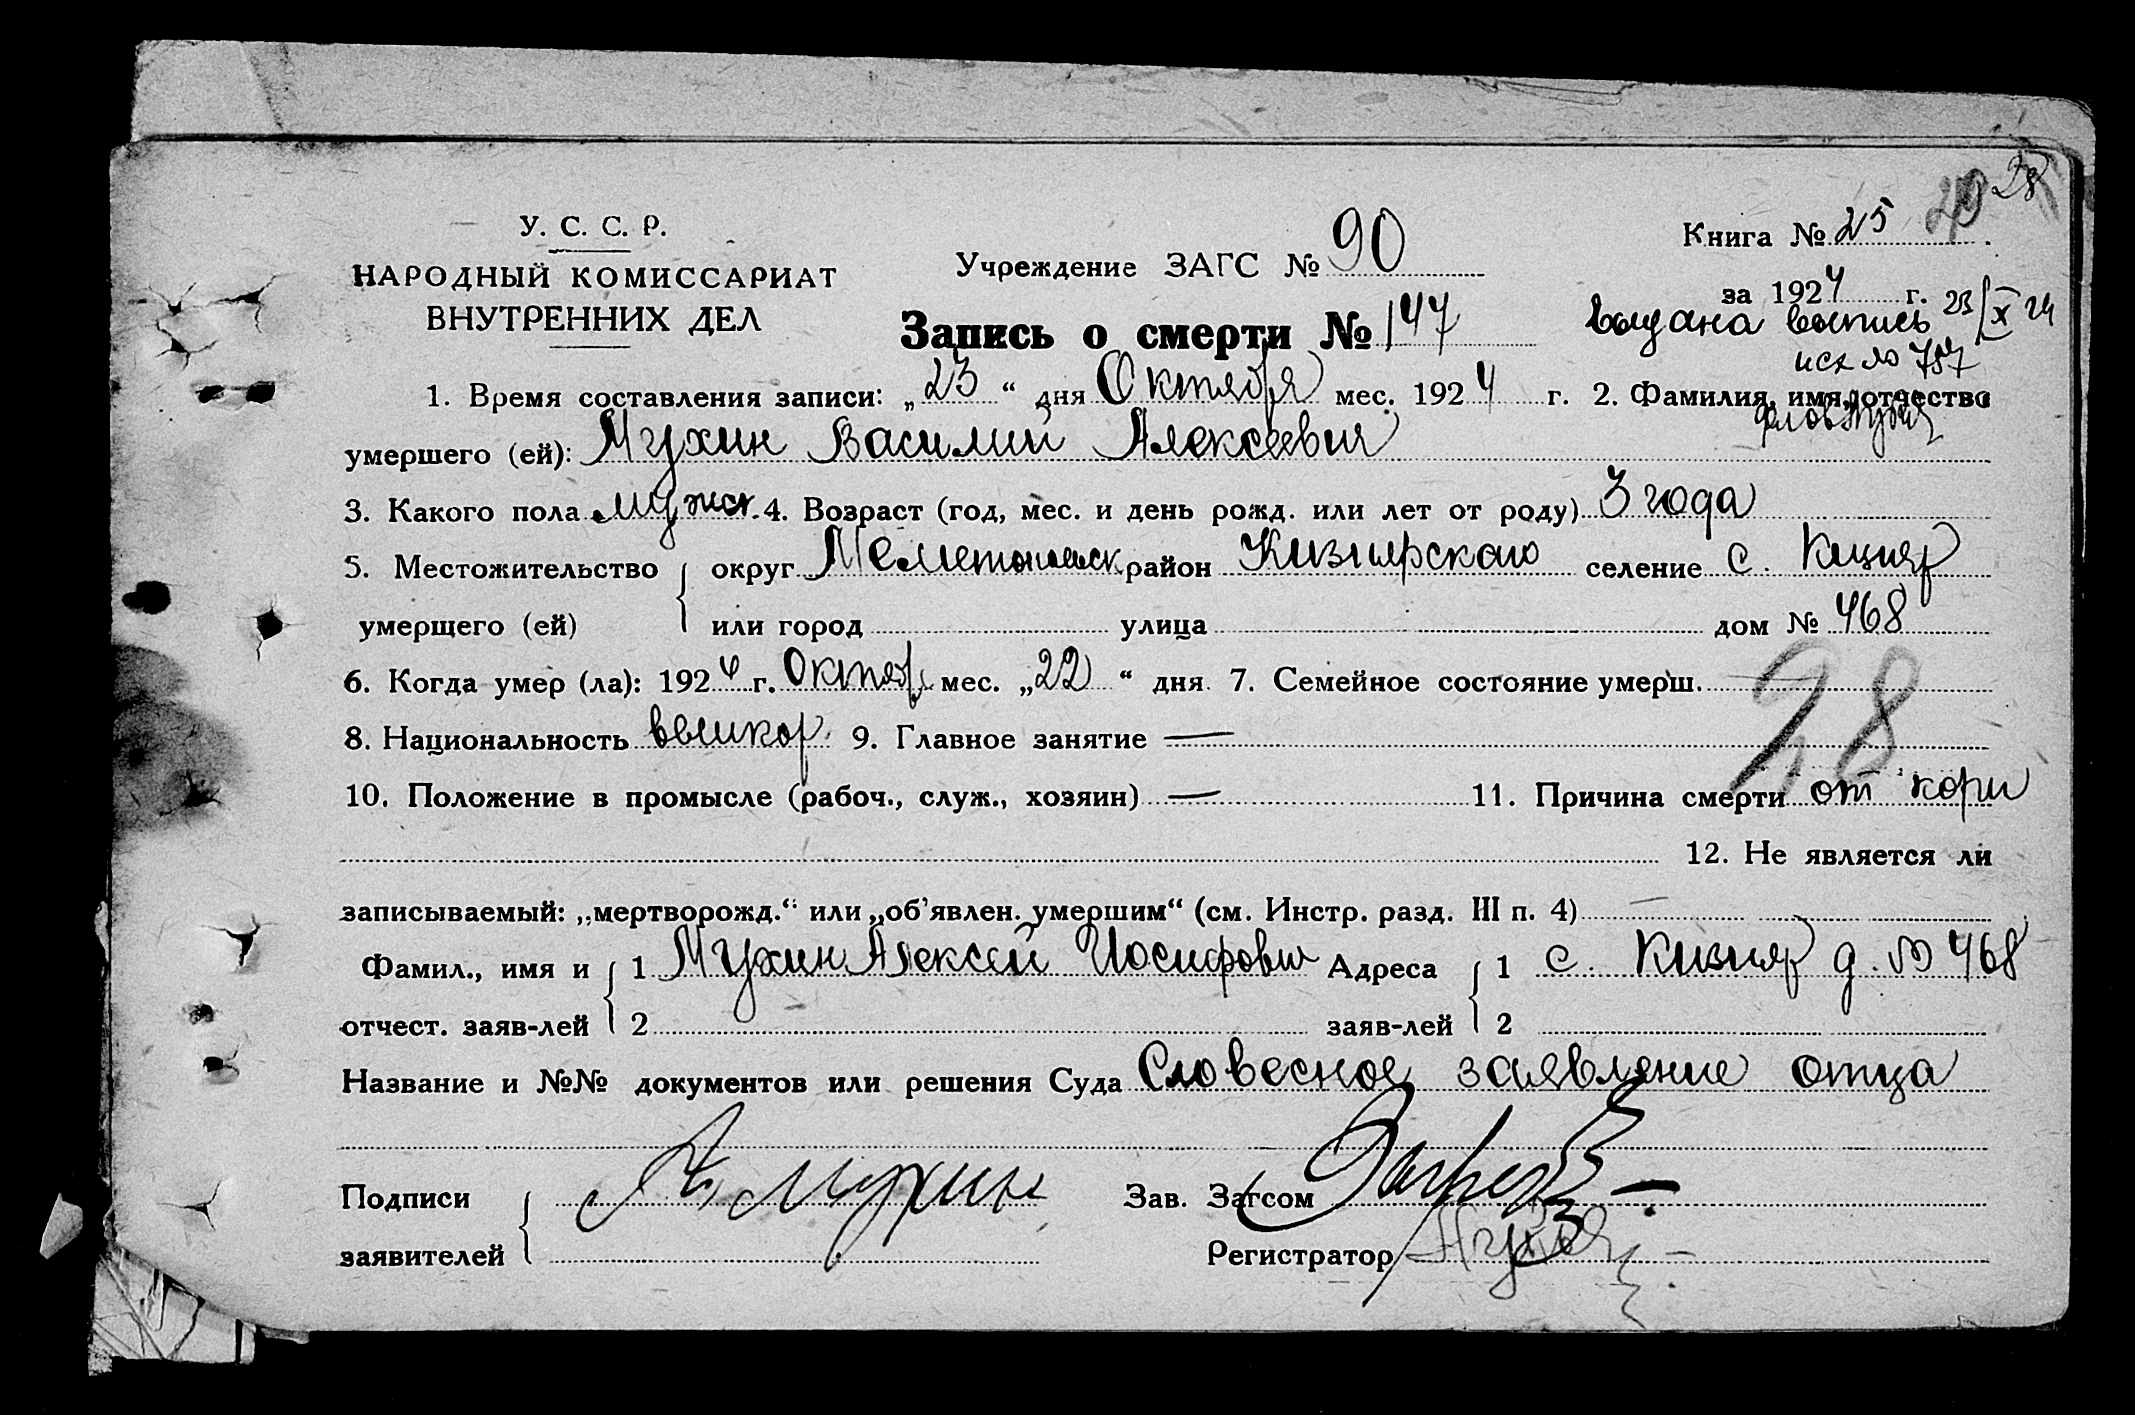 28
У. С. С. Р.
НАРОДНЫЙ КОМИССАРИАТ
ВНУТРЕННИХ ДЕЛ
Учреждение ЗАГС № 90
Книга № 25
за 1924 г.
Запись о смерти № 147
Выдана выпись 23/X 24
исх № 757
1. Время составления записи: „23“ дня Октября мес. 1924 г. 2. Фамилия, имя, отчество
умершего (ей): Мухин Василий Алексеевич
3. Какого пола мужск. 4. Возраст (год, мес. и день рожд. или лет от роду) 3 года
5. Местожительство округ Мелитопольск район Кизиярского селение с. Кизияр
умершего (ей) или город улица дом № 468
6. Когда умер (ла): 1924 г. Октябр мес. „22“ дня 7. Семейное состояние умерш.
28
8. Национальность великор. 9. Главное занятие —
10. Положение в промысле (рабоч., служ., хозяин) — 11. Причина смерти от кори
12. Не является ли
записываемый: „мертворожд.“ или „об’явлен. умершим“ (см. Инстр. разд. III п. 4) —
Фамил., имя и 1 Мухин Алексей Иосифович Адреса 1 с. Кизияр д. № 468
отчест. заяв-лей 2 заяв-лей 2
Название и №№ документов или решения Суда Словесное заявление отца
Подписи А Мухин Зав. Загсом
заявителей Регистратор